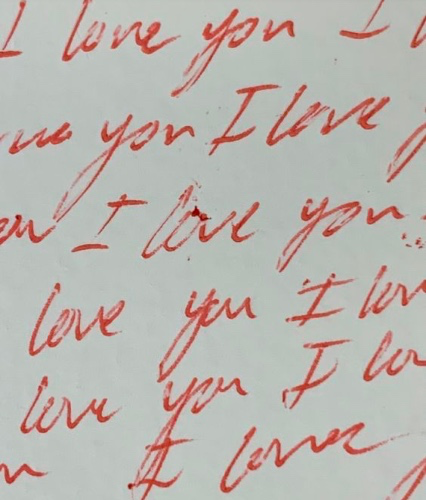 I love you I
you I love
I love you
love you I lov
love you I lo
I love